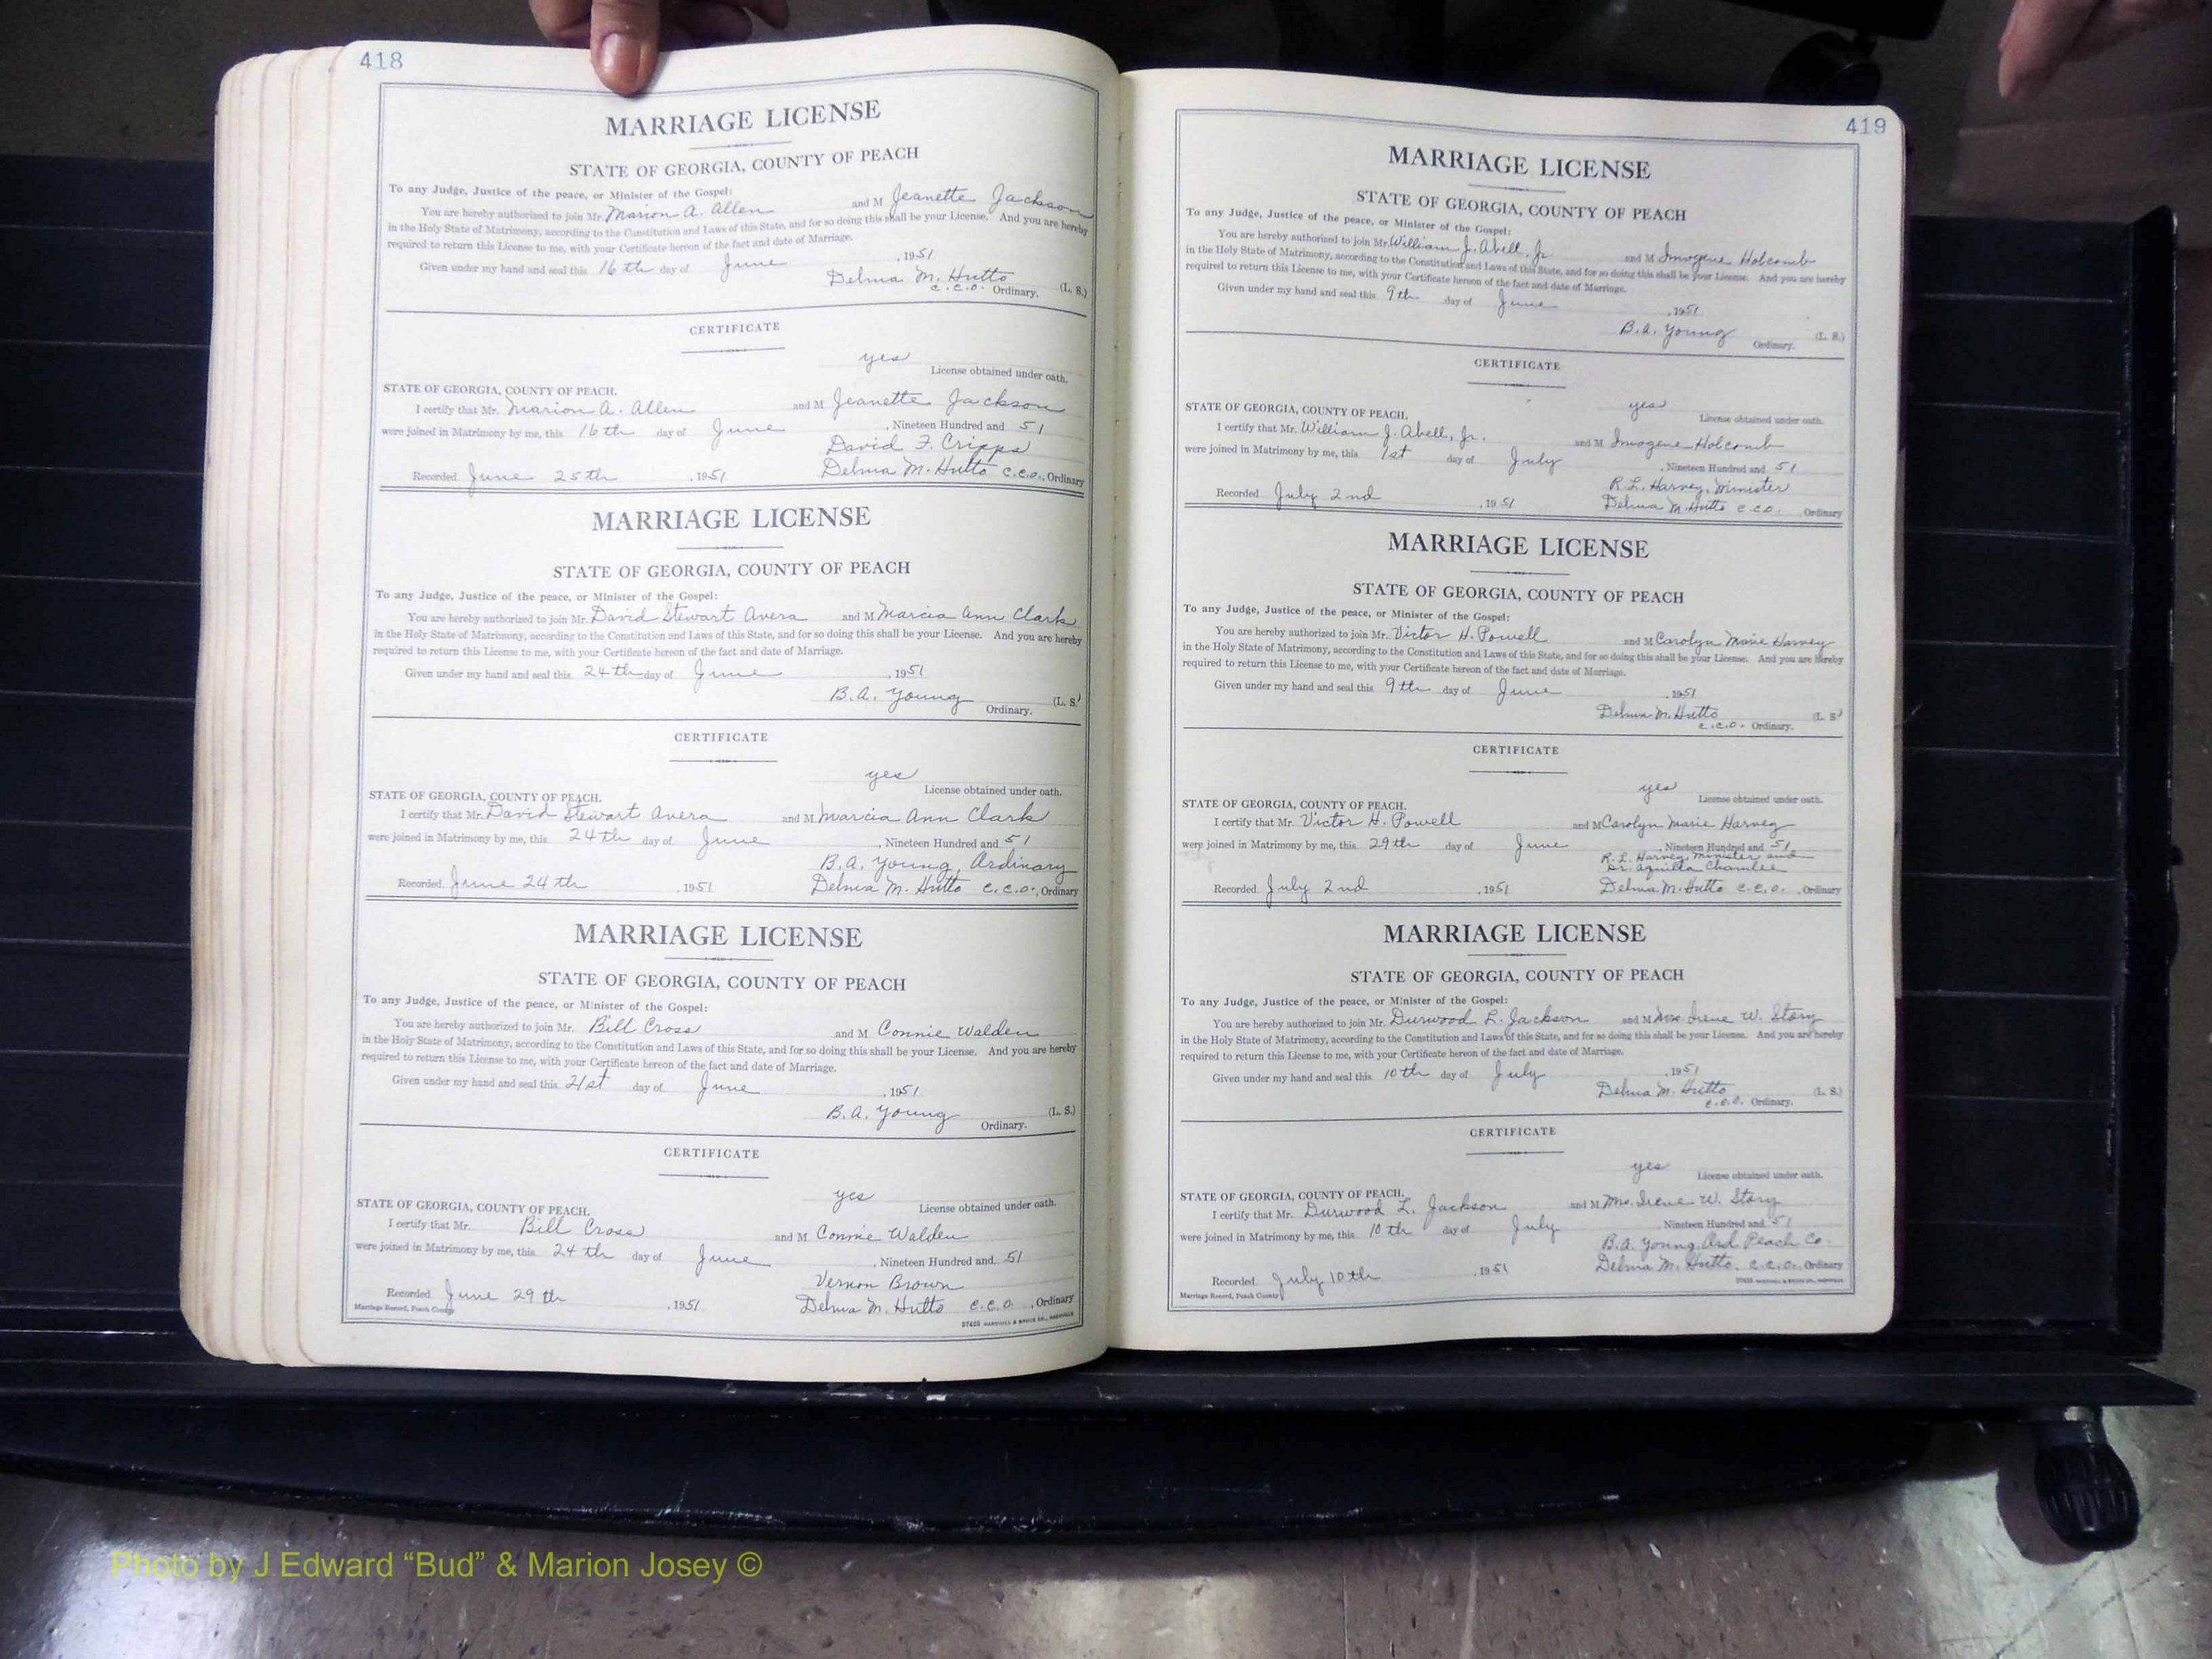 418
MARRIAGE LICENSE
STATE OF GEORGIA, COUNTY OF PEACH
To any Judge, Justice of the peace, or Minister of the Gospel:
You are hereby authorized to join Mr. Marion A. Allen and M Jeanette Jackson
in the Holy State of Matrimony, according to the Constitution and Laws of this State, and for so doing this shall be your License. And you are hereby
required to return this License to me, with your Certificate hereon of the fact and date of Marriage.
Given under my hand and seal this 16th day of June, 1951
Delma M. Hutto
C.C.O. Ordinary. (L. S.)
CERTIFICATE
yes
License obtained under oath.
STATE OF GEORGIA, COUNTY OF PEACH.
I certify that Mr. Marion A. Allen and M Jeanette Jackson
were joined in Matrimony by me, this 16th day of June, Nineteen Hundred and 51
David F. Cripps
Recorded June 25th, 1951 Delma M. Hutto C.C.O., Ordinary
MARRIAGE LICENSE
STATE OF GEORGIA, COUNTY OF PEACH
To any Judge, Justice of the peace, or Minister of the Gospel:
You are hereby authorized to join Mr. David Stewart Avera and M Marcia Ann Clark
in the Holy State of Matrimony, according to the Constitution and Laws of this State, and for so doing this shall be your License. And you are hereby
required to return this License to me, with your Certificate hereon of the fact and date of Marriage.
Given under my hand and seal this 24th day of June, 1951
B.A. Young (L. S.)
Ordinary.
CERTIFICATE
yes
License obtained under oath.
STATE OF GEORGIA, COUNTY OF PEACH.
I certify that Mr. David Stewart Avera and M Marcia Ann Clark
were joined in Matrimony by me, this 24th day of June, Nineteen Hundred and 51
B.A. Young, Ordinary
Recorded June 24th, 1951 Delma M. Hutto C.C.O., Ordinary
MARRIAGE LICENSE
STATE OF GEORGIA, COUNTY OF PEACH
To any Judge, Justice of the peace, or Minister of the Gospel:
You are hereby authorized to join Mr. Bill Cross and M Connie Walden
in the Holy State of Matrimony, according to the Constitution and Laws of this State, and for so doing this shall be your License. And you are hereby
required to return this License to me, with your Certificate hereon of the fact and date of Marriage.
Given under my hand and seal this 21st day of June, 1951
B.A. Young (L. S.)
Ordinary.
CERTIFICATE
yes
License obtained under oath.
STATE OF GEORGIA, COUNTY OF PEACH.
I certify that Mr. Bill Cross and M Connie Walden
were joined in Matrimony by me, this 24th day of June, Nineteen Hundred and 51
Vernon Brown
Recorded June 29th, 1951 Delma M. Hutto C.C.O., Ordinary
Marriage Record, Peach County
419
MARRIAGE LICENSE
STATE OF GEORGIA, COUNTY OF PEACH
To any Judge, Justice of the peace, or Minister of the Gospel:
You are hereby authorized to join Mr. William J. Abell, Jr. and M Imogene Holcomb
in the Holy State of Matrimony, according to the Constitution and Laws of this State, and for so doing this shall be your License. And you are hereby
required to return this License to me, with your Certificate hereon of the fact and date of Marriage.
Given under my hand and seal this 9th day of June, 1951
B.A. Young (L. S.)
Ordinary.
CERTIFICATE
yes
License obtained under oath.
STATE OF GEORGIA, COUNTY OF PEACH.
I certify that Mr. William J. Abell, Jr. and M Imogene Holcomb
were joined in Matrimony by me, this 1st day of July, Nineteen Hundred and 51
R.L. Harvey, Minister
Recorded July 2nd, 1951 Delma M. Hutto C.C.O. Ordinary
MARRIAGE LICENSE
STATE OF GEORGIA, COUNTY OF PEACH
To any Judge, Justice of the peace, or Minister of the Gospel:
You are hereby authorized to join Mr. Victor H. Powell and M Carolyn Marie Harvey
in the Holy State of Matrimony, according to the Constitution and Laws of this State, and for so doing this shall be your License. And you are hereby
required to return this License to me, with your Certificate hereon of the fact and date of Marriage.
Given under my hand and seal this 9th day of June, 1951
Delma M. Hutto (L. S.)
C.C.O. Ordinary.
CERTIFICATE
yes
License obtained under oath.
STATE OF GEORGIA, COUNTY OF PEACH.
I certify that Mr. Victor H. Powell and M Carolyn Marie Harvey
were joined in Matrimony by me, this 29th day of June, Nineteen Hundred and 51
R.L. Harvey, Minister and
Dr. Aquilla Chamlee
Recorded July 2nd, 1951 Delma M. Hutto C.C.O., Ordinary
MARRIAGE LICENSE
STATE OF GEORGIA, COUNTY OF PEACH
To any Judge, Justice of the peace, or Minister of the Gospel:
You are hereby authorized to join Mr. Durwood L. Jackson and M Mrs. Irene W. Story
in the Holy State of Matrimony, according to the Constitution and Laws of this State, and for so doing this shall be your License. And you are hereby
required to return this License to me, with your Certificate hereon of the fact and date of Marriage.
Given under my hand and seal this 10th day of July, 1951
Delma M. Hutto (L. S.)
C.C.O. Ordinary.
CERTIFICATE
yes
License obtained under oath.
STATE OF GEORGIA, COUNTY OF PEACH.
I certify that Mr. Durwood L. Jackson and M Mrs. Irene W. Story
were joined in Matrimony by me, this 10th day of July, Nineteen Hundred and 51
B.A. Young, Ord Peach Co.
Recorded July 10th, 1951 Delma M. Hutto, C.C.O. Ordinary
Marriage Record, Peach County
Photo by J Edward “Bud” & Marion Josey ©